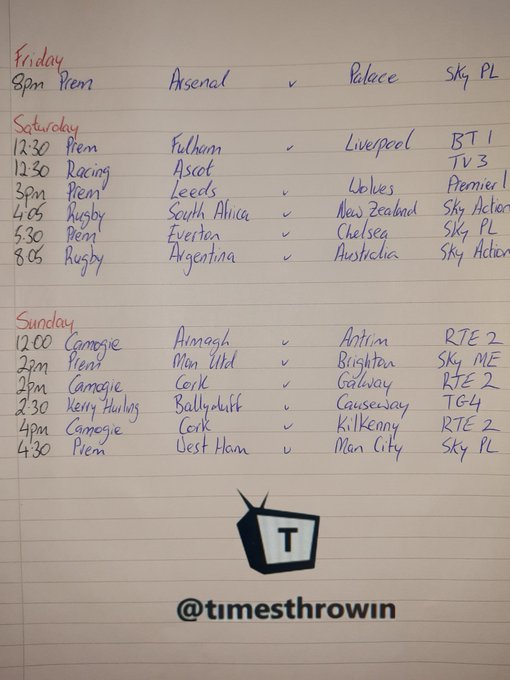 Friday
8pm Prem Arsenal v Palace Sky PL
Saturday
12:30 Prem Fulham v Liverpool BT 1
12:30 Racing Ascot TV3
3pm Prem Leeds v Wolves Premier 1
4:05 Rugby South Africa v New Zealand Sky Action
5.30 Prem Everton v Chelsea Sky PL
8.05 Rugby Argentina v Australia Sky Action
Sunday
12:00 Camogie Armagh v Antrim RTE 2
2pm Prem Man Utd v Brighton Sky ME
2pm Camogie Cork v Galway RTE 2
2:30 Kerry Hurling Ballyduff v Causeway TG4
4pm Camogie Cork v Kilkenny RTE 2
4:30 Prem West Ham v Man City Sky PL
T
@timesthrowin